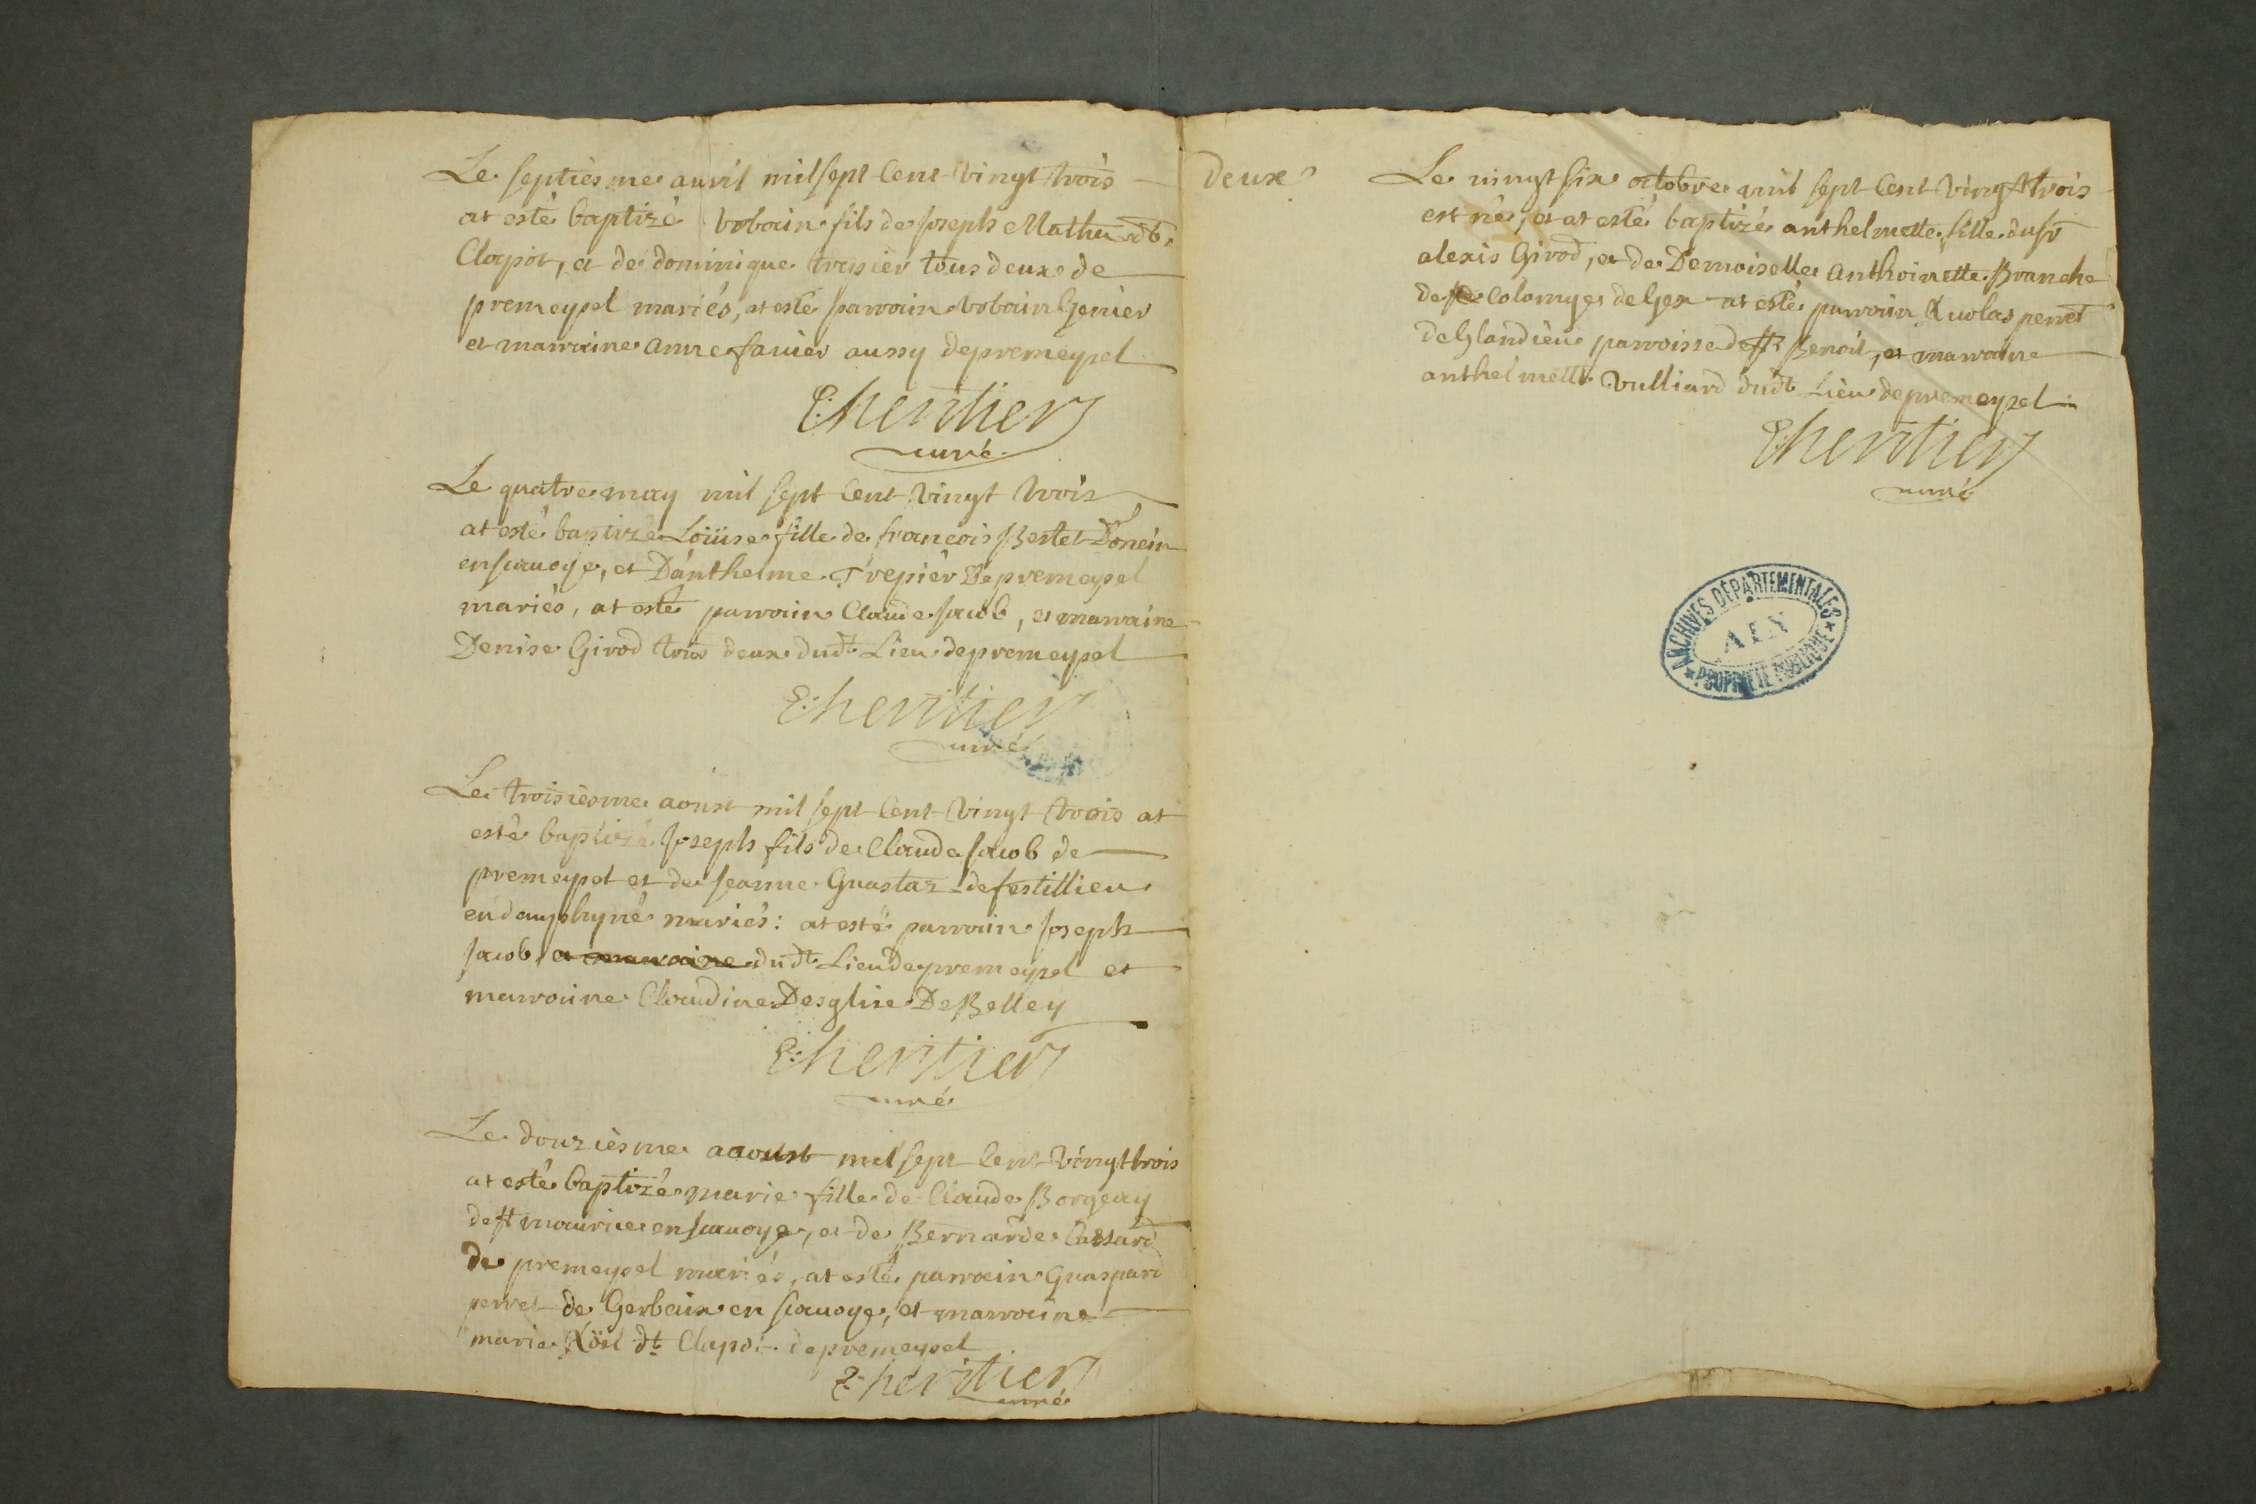 Le septiesme auril mil sept Cent Vingt trois
at esté baptizé Vrbain fils de Joseph Mathieu dt
Clapot, et de dominique trepier tous deux de
premeysel mariés, at esté parrain Vrbain Genier
et marraine anne fauier aussy de premeysel
E: heritier
curé
Le quatre may mil sept Cent Vingt trois
at esté baptizé Loüise fille de francois Bertet Donein
en sauoye, et Danthelme Trepier De premeysel
mariés, at esté parrain Claude Jacob, et marraine
Denise Girod tous deux dudt Lieu de premeysel
E: heritier
curé
Le troisiesme aoust mil sept Cent Vingt trois at
esté baptizé Joseph fils de Claude Jacob de
premeysel et de Jeanne Guastaz de festillieu
en dauphyné mariés: at esté parrain Joseph
Jacob et marraine dudt Lieu de premeysel et
marraine Claudine Desglise De Belley
E: heritier
curé
Le douziesme aaoust mil sept Cent Vingt trois
at esté baptizé marie fille de Claude Borgeay
de st maurice en sauoye, et de Bernarde Cassard
de premeysel mariés, at esté parrain Guaspard
perret de Gerbaix en sauoye, et marraine
marie Röil dt Clapot de premeysel
E: heritier
curé
deux
Le vingt six octobre mil sept Cent Vingt trois
est né, et at esté baptizé anthelmette fille du sr
alexis Girod, et de Demoiselle anthoinette Branche
de Colomge de Gex at esté parrain Nicolas perret
de Glandieu parroisse de st Benoit, et marraine
anthelmette Vulliard dudt Lieu de premeysel
E: heritier
curé
ARCHIVES DÉPARTEMENTALES
AIN
PROPRIÉTÉ PUBLIQUE